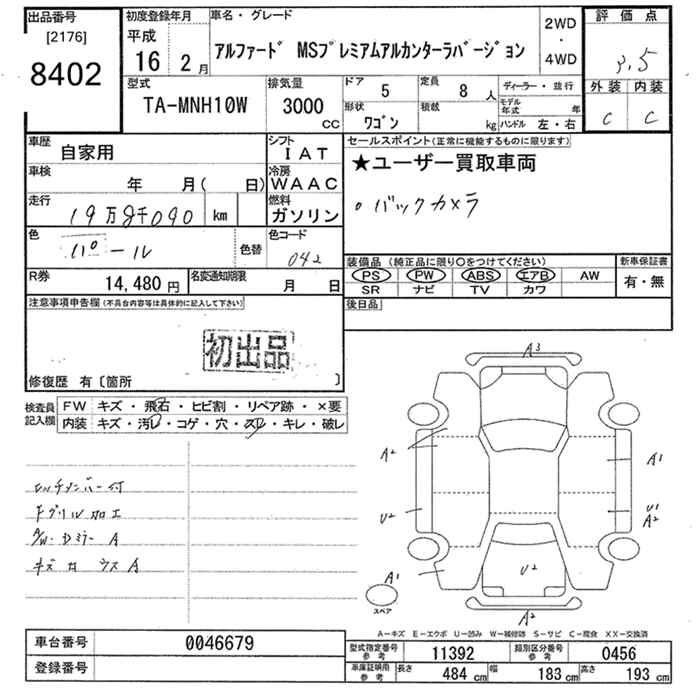 出品番号
[2176]
8402
初度登録年月
平成
16 2月
車名・グレード
アルファード MSプレミアムアルカンターラバージョン
2WD
・
4WD
評価点
3.5
外装 内装
C C
型式
TA-MNH10W
排気量
3000
CC
ドア 5
定員 8 人
形状
ワゴン
積載
kg
ディーラー・並行
モデル年式 年
ハンドル 左・右
車歴
自家用
シフト
IAT
車検
年 月( 日)
冷房
WAAC
走行
19万8千090 km
燃料
ガソリン
色
パール
色替
色コード
042
R券
14,480円
名変通知期限
月 日
セールスポイント(正常に機能するものに限ります)
★ユーザー買取車両
。バックカメラ
装備品(純正品に限り○をつけてください)
PS PW ABS エアB AW
SR ナビ TV カワ
新車保証書
有・無
後日品
注意事項申告欄(不具合内容等は具体的に記入して下さい)
初出品
修復歴 有〔箇所 〕
検査員記入欄
FW キズ・飛石・ヒビ割・リペア跡・×要
内装 キズ・汚レ・コゲ・穴・スレ・キレ・破レ
Fグリル加工
A3
A2
A1
U2
U1
A2
A1
U2
A2
スペア
A-キズ E-エクボ U-凹み W-補修跡 S-サビ C-腐食 XX-交換済
車台番号 0046679
登録番号
型式指定番号 参考 11392
類別区分番号 参考 0456
車庫証明用 参考 長さ 484 cm 幅 183 cm 高さ 193 cm